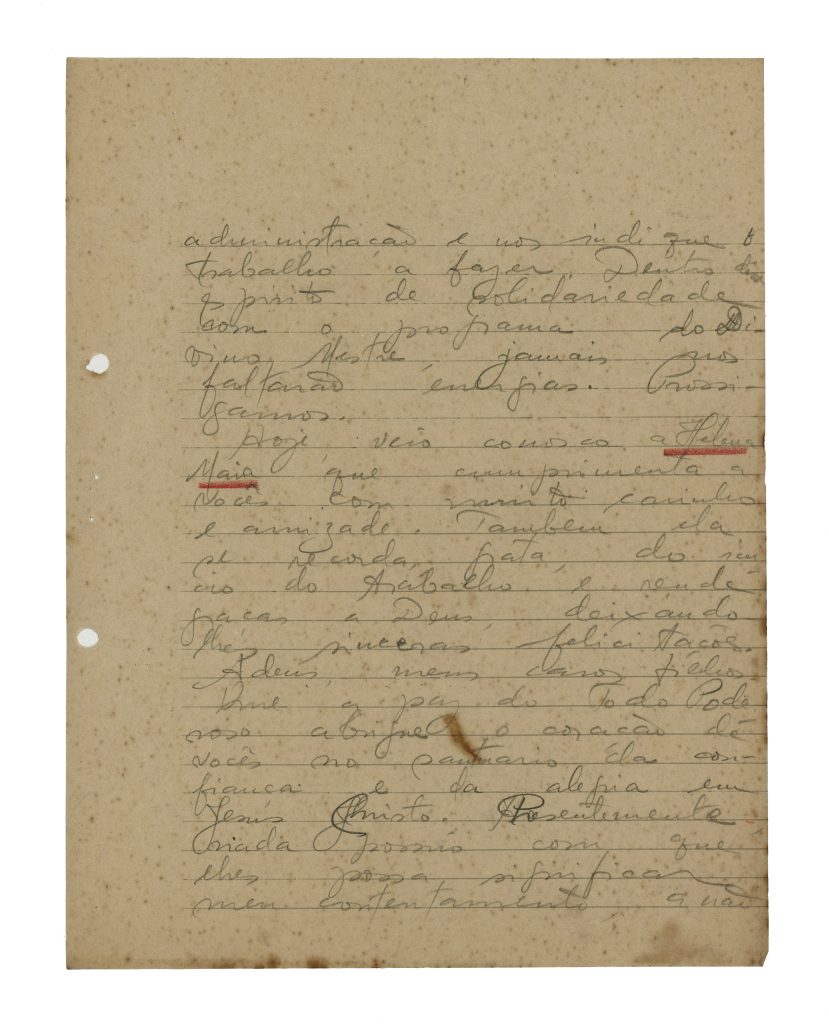 administração e nos indique o
trabalho a fazer. Dentro do
espirito de solidariedade
com o programa do Di-
vino Mestre, jamais nos
faltarão energias. Prossi-
gamos.
Hoje, veio conosco a Helena
Maia que cumprimenta a
vocês com muito carinho
e amizade. Tambem ela
se recorda, grata, do
do trabalho e rende
graças a Deus, deixando
lhes sinceras felicitações.
Adeus, meus caros filhos.
Que a paz do Todo Pode
roso abrigue o coração de
vocês no santuario da con-
fiança e da alegria em
Jesús Christo. Presentemente,
nada possúo com que
lhes possa significar
meu contentamento, a não